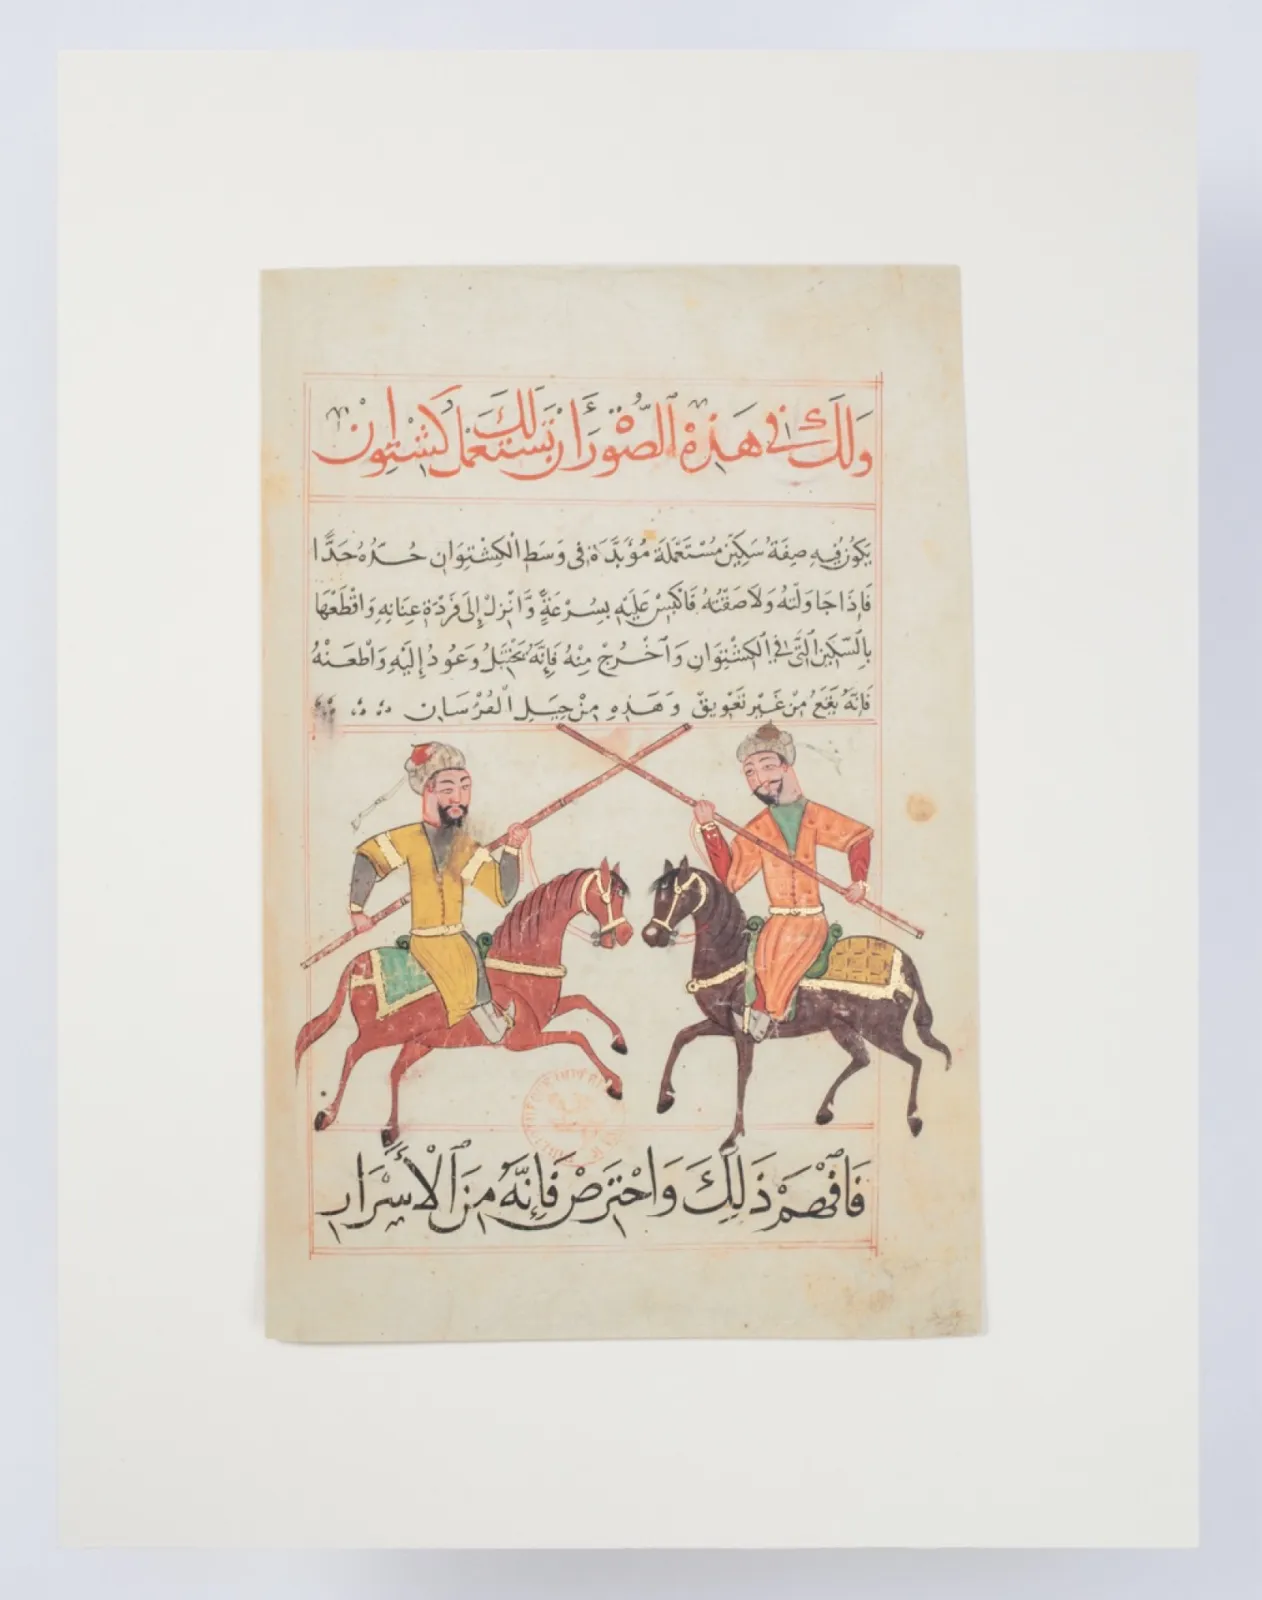 وَلَكَ فِي هَذِهِ الصُّوْرَةِ أَنْ تَسْتَعْمِلَ لَكَ كَشْتِوَانْ
يَكُونُ فِيهِ صِفَةُ سَكِيْنٍ مُسْتَعْمَلَةَ مُؤَبَّدَة فِى وَسَطِ الْكِشْتِوَانِ حَدُّهُ حَدًّا
فَإِذَا جَاوَلْتَهُ وَلَاصَقْتَهُ فَانْكَبِسْ عَلَيْهِ بِسُرْعَةٍ وَّانْزِلْ إِلَى فَرْدَةِ عِنَانِهِ وَاقْطَعْهَا
بِالسِّكِيْنِ الَّتِى فِي الْكَشْتِوَانِ وَاخْرُجْ مِنْهُ فَإِنَّهُ يَخْتَبِلُ وَعُودُ إِلَيْهِ وَاطْعَنْهُ
فَإِنَّهُ يَقَعُ مِنْ غَيْرِ تَعْوِيقْ وَهَذِهِ مِنْ حِيَلِ الْفُرْسَانِ
فَافْهَمْ ذَلِكَ وَاحْتَرِصْ فَإِنَّهُ مِنَ الْأَسْرَارِ